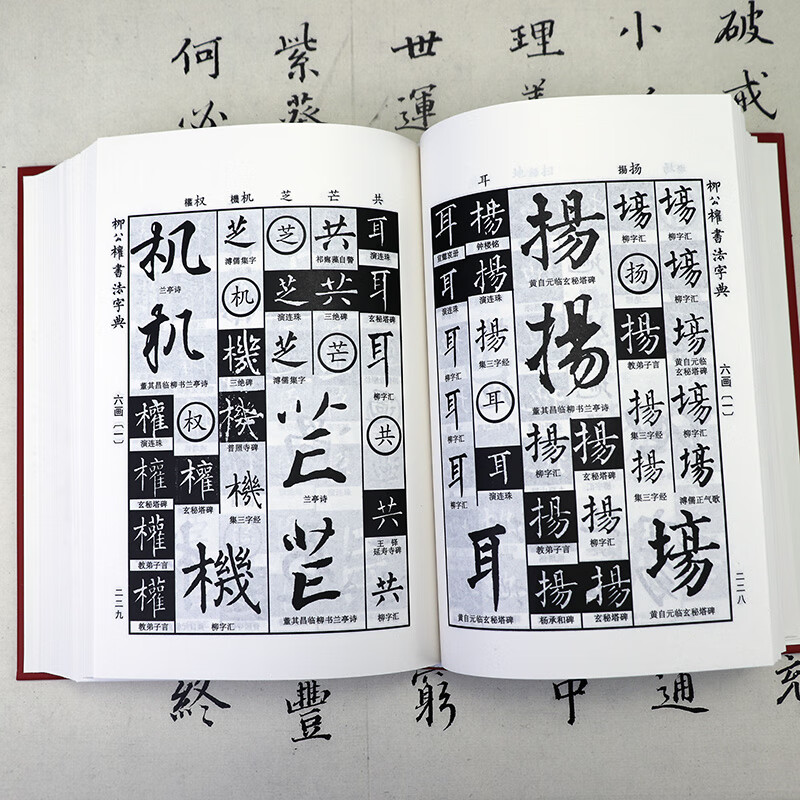 破戒
小
理
世運
紫
何必
柳公權書法字典
六画〔一〕
二二八
揚扬
耳
場
柳字汇
場
柳字汇
場
黄自元临
玄秘塔碑
場
柳字汇
場
溥儒正气歌
場
柳字汇
扬
揚
教弟子言
揚
集三字经
揚
集三字经
場
黄自元临玄秘塔碑
揚
黄自元临玄秘塔碑
揚
董其昌临柳书兰亭诗
揚
玄秘塔碑
揚
柳字汇
揚
玄秘塔碑
揚
柳字汇
揚
教弟子言
揚
杨承和碑
揚
钟楼铭
揚
演连珠
揚
集三字经
耳
耳
演连珠
耳
耳
演连珠
耳
柳字汇
耳
柳字汇
耳
柳字汇
耳
黄自元临玄秘塔碑
共
芒
芝
機机
權权
耳
演连珠
耳
玄秘塔碑
耳
柳字汇
共
共
王铎
延寿寺碑
共
柳字汇
共
祁寯藻自警
共
三绝碑
芒
芝
芝
演连珠
芝
溥儒集字
芒
兰亭诗
芒
董其昌临柳书兰亭诗
芝
溥儒集字
机
機
三绝碑
機
普照寺碑
機
集三字经
機
柳字汇
机
兰亭诗
机
董其昌临柳书兰亭诗
权
權
玄秘塔碑
權
演连珠
權
玄秘塔碑
權
教弟子言
權
教弟子言
柳公權書法字典
六画〔一〕
二二九
充
通
中
窮
豐
終